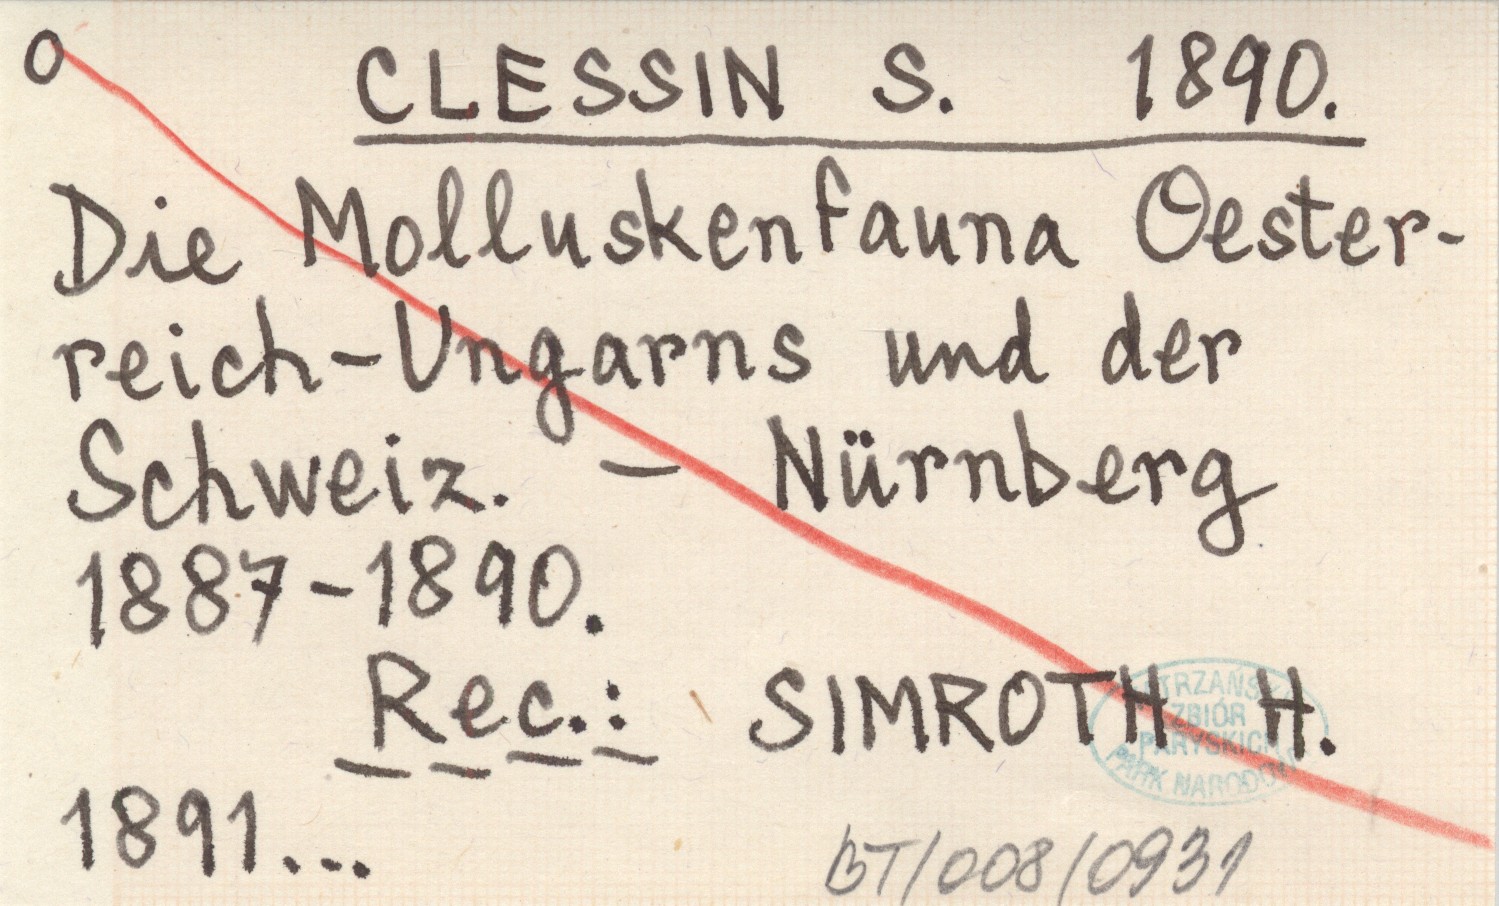 O CLESSIN S. 1890.
Die Molluskenfauna Oester-
reich-Ungarns und der
Schweiz. – Nürnberg
1887-1890.
Rec.: SIMROTH H.
1891...
ZBIÓR
PARYSKICH
PARK NARODOW
BT/008/0931